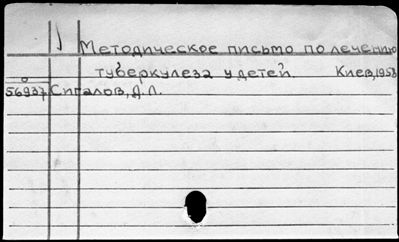 Методическое письмо по лечению
туберкулеза у детей. Киев, 1958
56937 Сигалов, Д.Л.